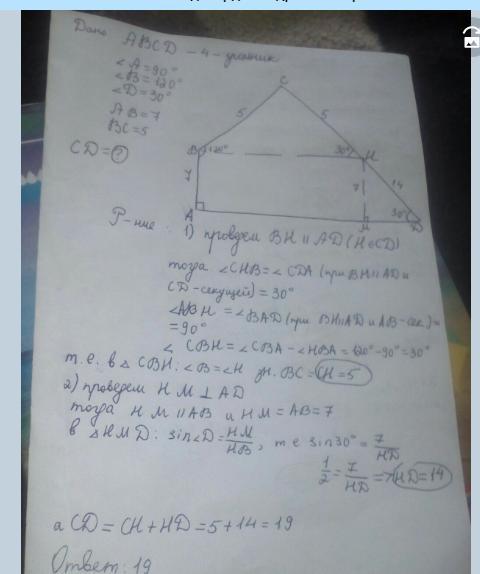 Дано ABCD - 4-угольник
∠A=90°
∠B=120°
∠D=30°
AB=7
BC=5
CD=?
C
5
5
B
120°
30°
H
7
7
14
A
M
30°
D
Р-ние:
1) проведем BH || AD (H∈CD)
тогда ∠CHB=∠CDA (при BH||AD и
CD-секущей)=30°
∠ABH = ∠BAD (при BH||AD и AB-сек.)=
=90°
∠ CBH=∠CBA-∠HBA=120°-90°=30°
т.е. в Δ CBH: ∠B=∠H зн. BC=CH=5
2) проведем HM ⊥ AD
тогда HM || AB и HM=AB=7
в ΔHMD: sin∠D=HM/HB, т е sin30°=7/HD
1/2=7/HD=>HD=14
а CD=CH+HD=5+14=19
Ответ: 19